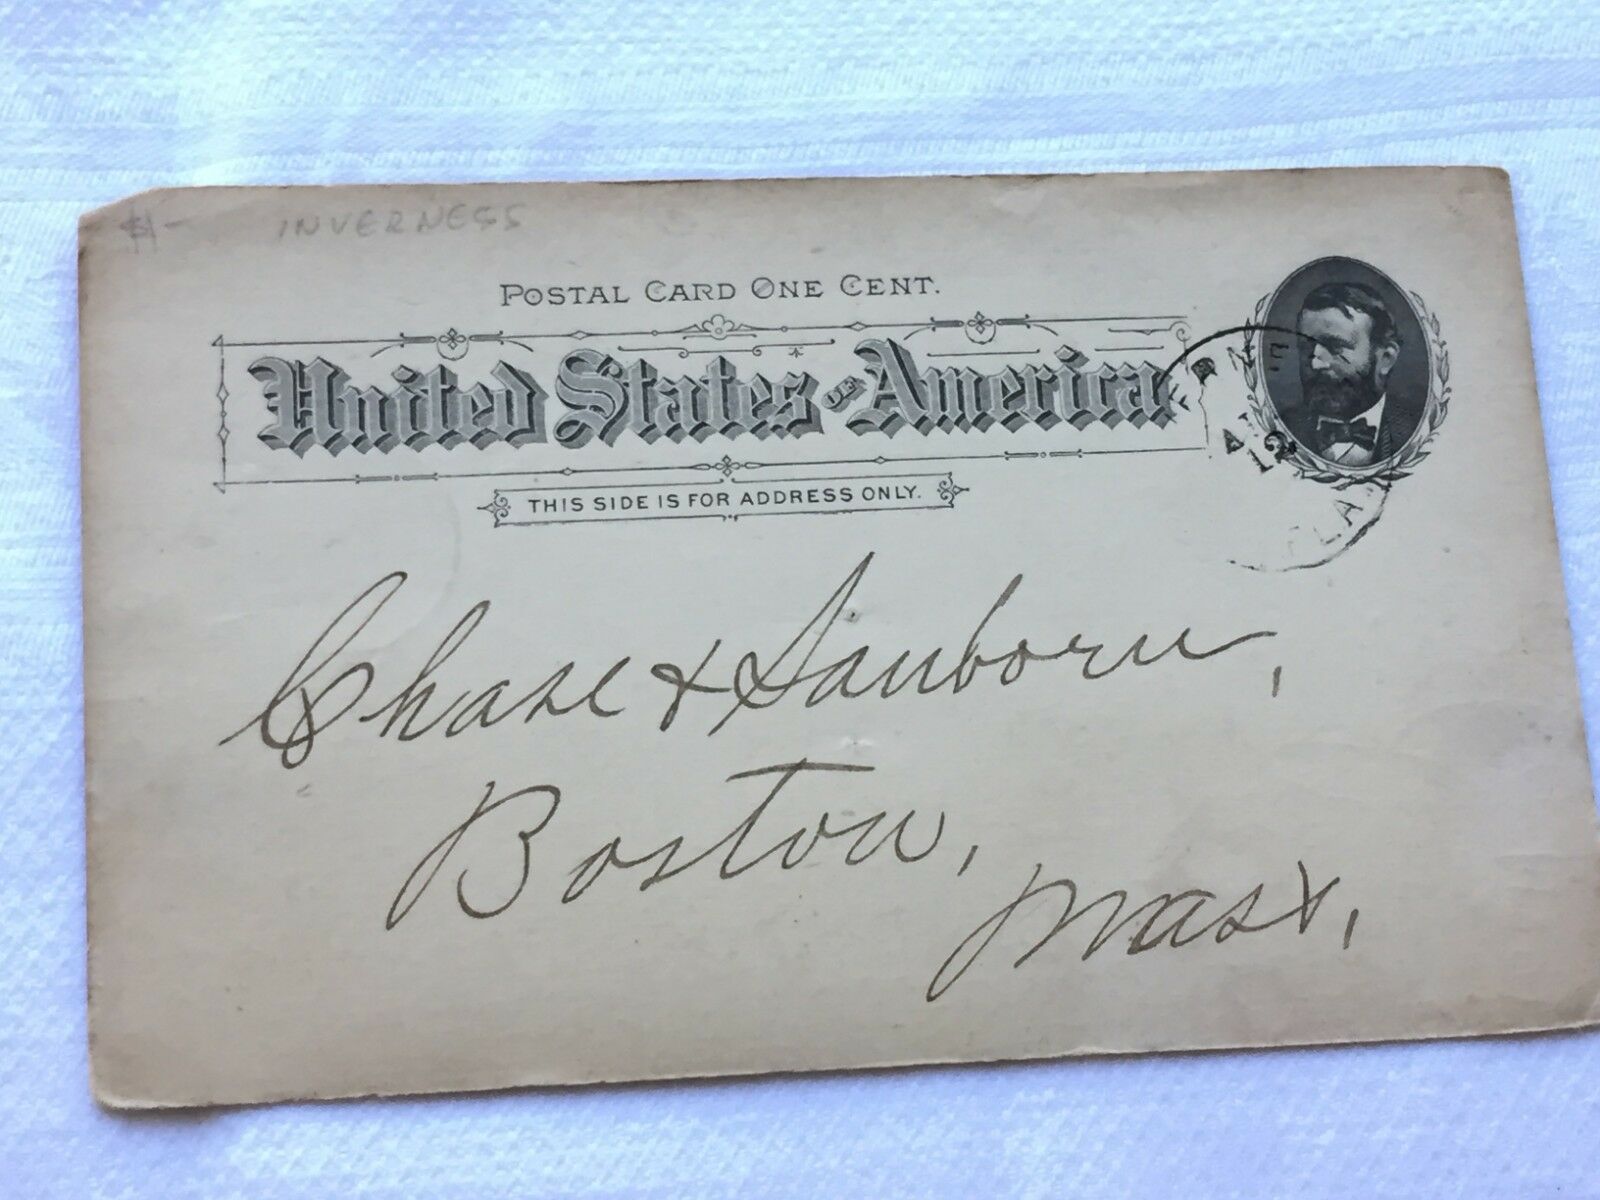 $1- INVERNESS
POSTAL CARD ONE CENT.
United States OF America
THIS SIDE IS FOR ADDRESS ONLY.
12
FLA
Chase & Sanborn,
Boston,
Mass,